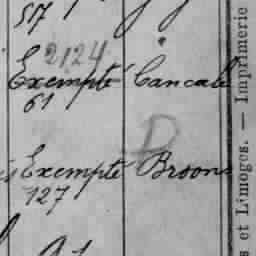 517
2124
Exempté Cancale
61
D
Exempté Broons
127
s et Limoges. — Imprimerie